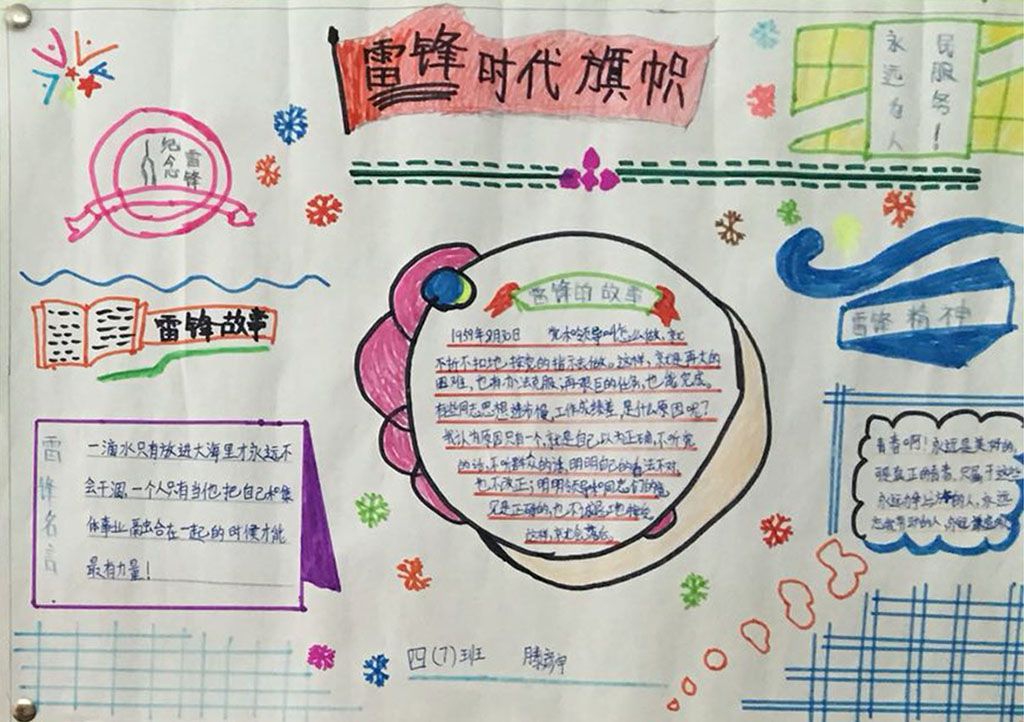 雷锋时代旗帜
永远为人
民服务!
纪念
雷锋
雷锋故事
雷锋的故事
雷锋精神
1959年8月30日 党和领导叫怎么做,就
不折不扣地按党的指示去做。这样,就是再大的
困难,也有办法克服,再艰巨的任务,也能完成。
有些同志思想进步慢,工作成绩差,是什么原因呢?
我认为原因只有一个,就是自己以为正确,不听党
的话,不听群众的话,明明自己的看法不对,
也不改正;明明领导和同志们的意
见是正确的,也不诚恳地接受
这样,就会落后。
雷锋名言
一滴水只有放进大海里才永远不
会干涸,一个人只有当他把自己和集
体事业融合在一起的时候才能
最有力量!
青春啊!永远是美好的,
现真正的青春,只属于这些
永远力争上游的人,永远
忘我劳动的人,永远
四(7)班